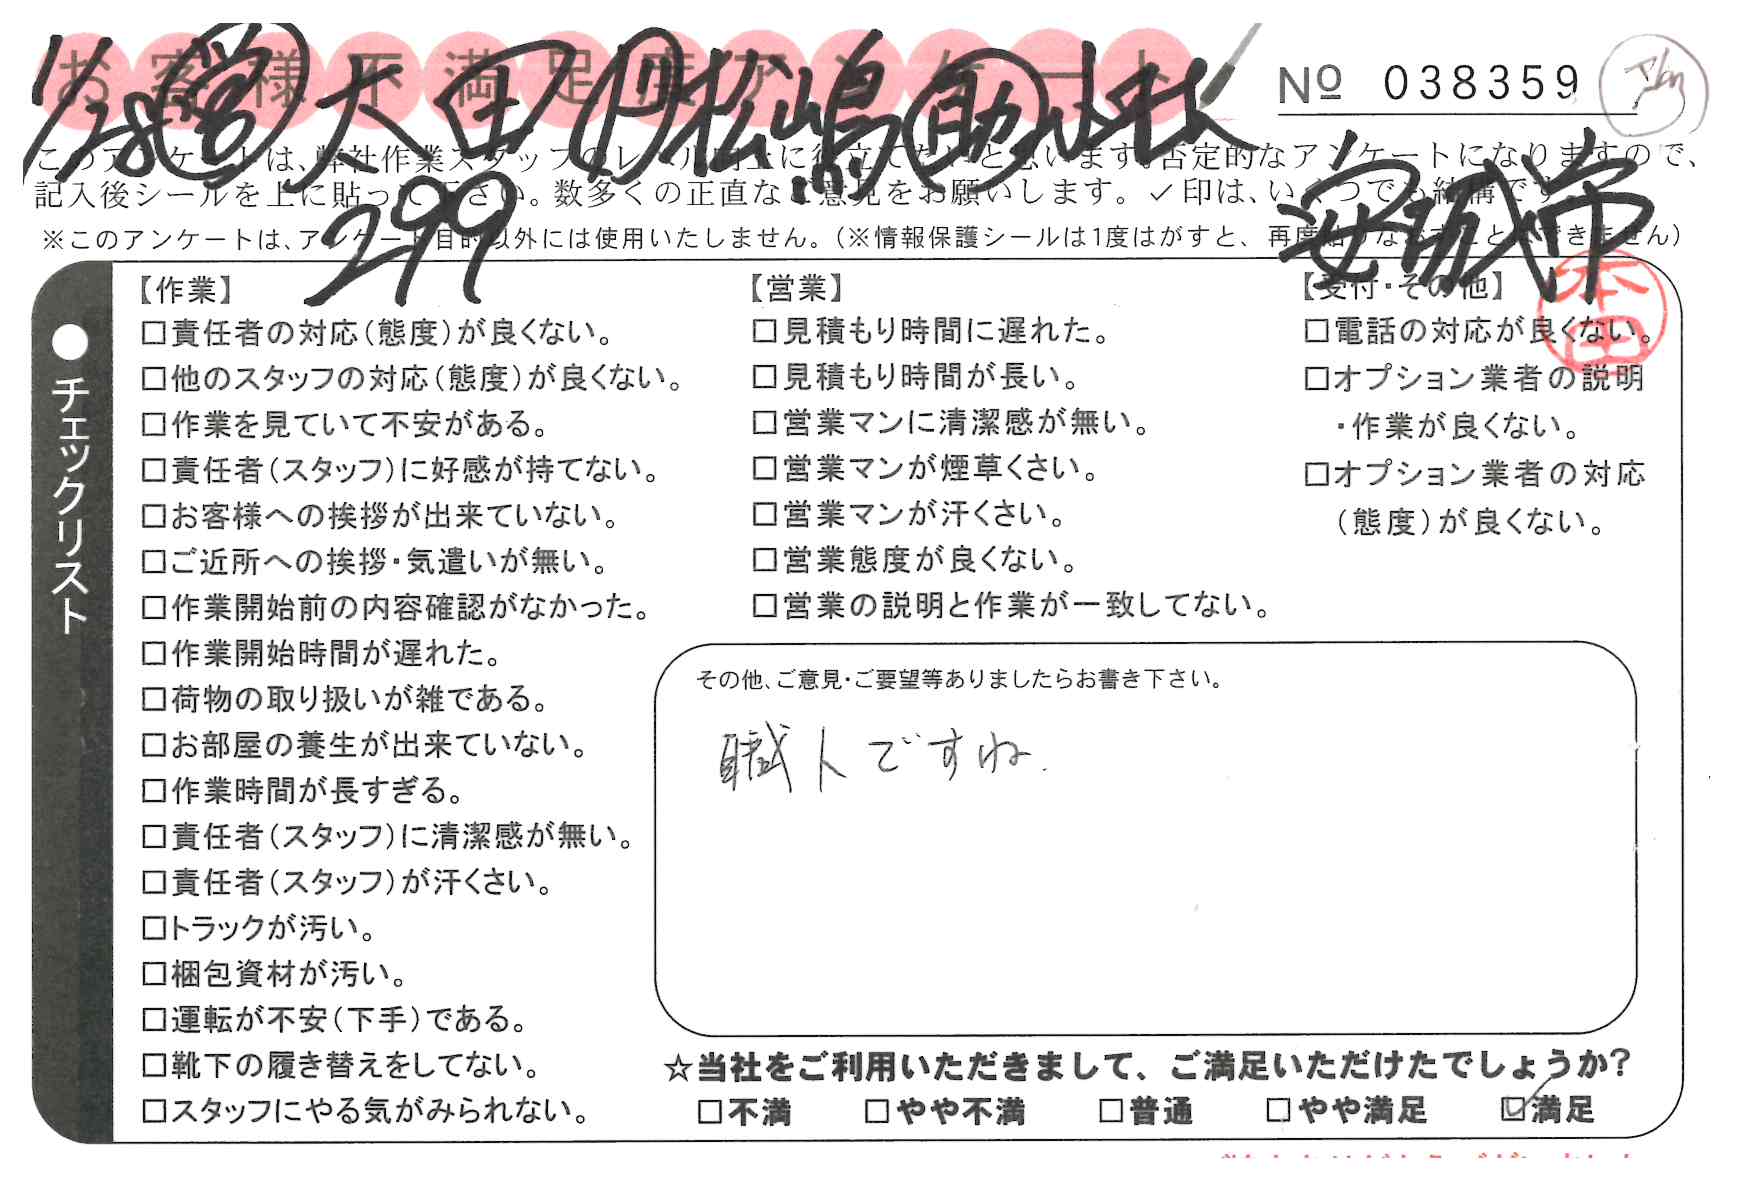 お客様不満足度アンケート
1/28 営 大田 作 松嶋 助 小林
No 038359
このアンケートは、弊社作業スタッフのレベル向上に役立てたいと思います。否定的なアンケートになりますので、
記入後シールを上に貼って下さい。数多くの正直なご意見をお願いします。✓印は、いくつでも結構です。
299
安城市
※このアンケートは、アンケート目的以外には使用いたしません。(※情報保護シールは1度はがすと、再度貼りなおすことはできません)
本田
●チェックリスト
【作業】
□責任者の対応(態度)が良くない。
□他のスタッフの対応(態度)が良くない。
□作業を見ていて不安がある。
□責任者(スタッフ)に好感が持てない。
□お客様への挨拶が出来ていない。
□ご近所への挨拶・気遣いが無い。
□作業開始前の内容確認がなかった。
□作業開始時間が遅れた。
□荷物の取り扱いが雑である。
□お部屋の養生が出来ていない。
□作業時間が長すぎる。
□責任者(スタッフ)に清潔感が無い。
□責任者(スタッフ)が汗くさい。
□トラックが汚い。
□梱包資材が汚い。
□運転が不安(下手)である。
□靴下の履き替えをしてない。
□スタッフにやる気がみられない。
【営業】
□見積もり時間に遅れた。
□見積もり時間が長い。
□営業マンに清潔感が無い。
□営業マンが煙草くさい。
□営業マンが汗くさい。
□営業態度が良くない。
□営業の説明と作業が一致してない。
【受付・その他】
□電話の対応が良くない。
□オプション業者の説明
・作業が良くない。
□オプション業者の対応
(態度)が良くない。
その他、ご意見・ご要望等ありましたらお書き下さい。
職人ですね.
☆当社をご利用いただきまして、ご満足いただけたでしょうか?
□不満 □やや不満 □普通 □やや満足 ☑満足